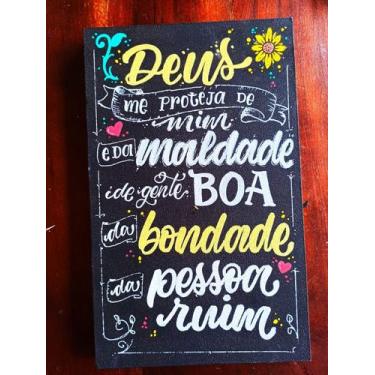 Deus
me proteja de
mim
e da maldade
de gente BOA
da bondade
da pessoa
ruim